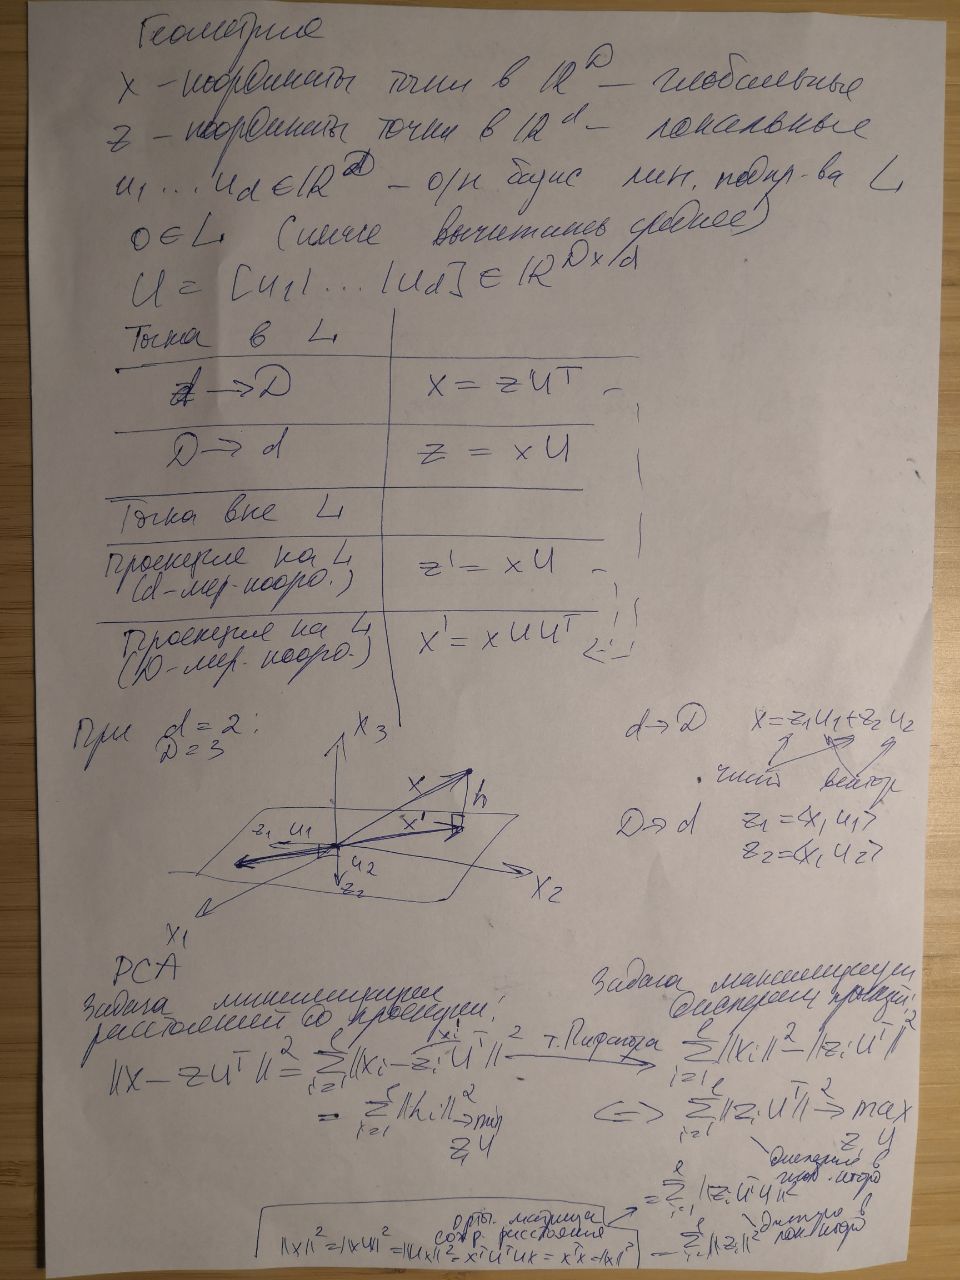 Геометрия
x – координаты точки в ℝ^D – глобальные
z – координаты точки в ℝ^d – локальные
u₁ ... u_d ∈ ℝ^D – о/н базис лин. подпр-ва L
0 ∈ L (иначе вычитаем среднее)
U = [u₁| ... |u_d] ∈ ℝ^{D×d}
Точка в L
d → D x = zUᵀ
D → d z = xU
Точка вне L
Проекция на L (d-мер. коорд.) z' = xU
Проекция на L (D-мер. коорд.) x' = xUUᵀ
При d=2:
D=3
x₃
x
h
x'
z₁ u₁
u₂
z₂
x₂
x₁
d→D x=z₁u₁+z₂u₂
числа вектора
D→d z₁=<x, u₁>
z₂=<x, u₂>
PCA
Задача минимизации
расстояний до проекции:
||X – ZUᵀ||² = Σ_{i=1}^ℓ ||xᵢ – zᵢUᵀ||²
x'ᵢ
= Σ_{i=1}^ℓ ||hᵢ||² → min
Z, U
т. Пифагора
Задача максимизации
дисперсии проекций:
Σ_{i=1}^ℓ ||xᵢ||² – ||zᵢUᵀ||²
<=> Σ_{i=1}^ℓ ||zᵢUᵀ||² → max
Z, U
дисперсия в
= Σ_{i=1}^ℓ ||zᵢUᵀU||²
= Σ_{i=1}^ℓ ||zᵢ||²
орт. матрица
сохр. расстояния
||x||² = ||xU||² = ||Ux||² = xᵀUᵀUx = xᵀx = ||x||²